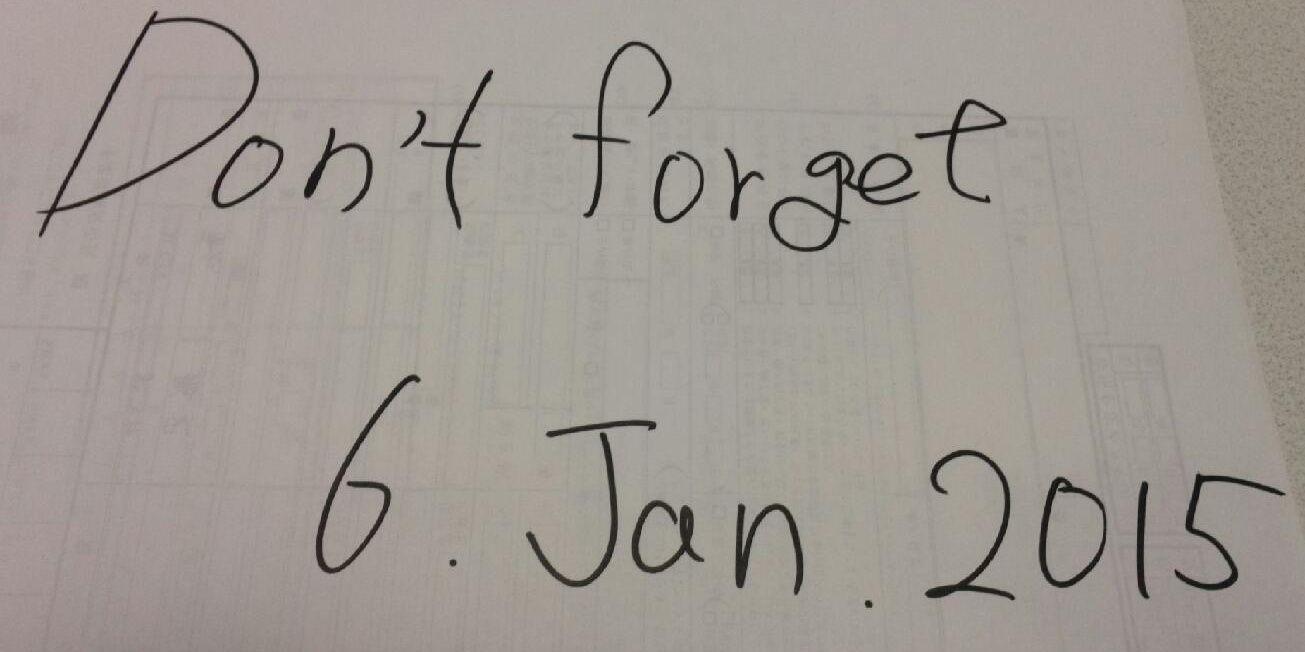 Don't forget
6. Jan. 2015